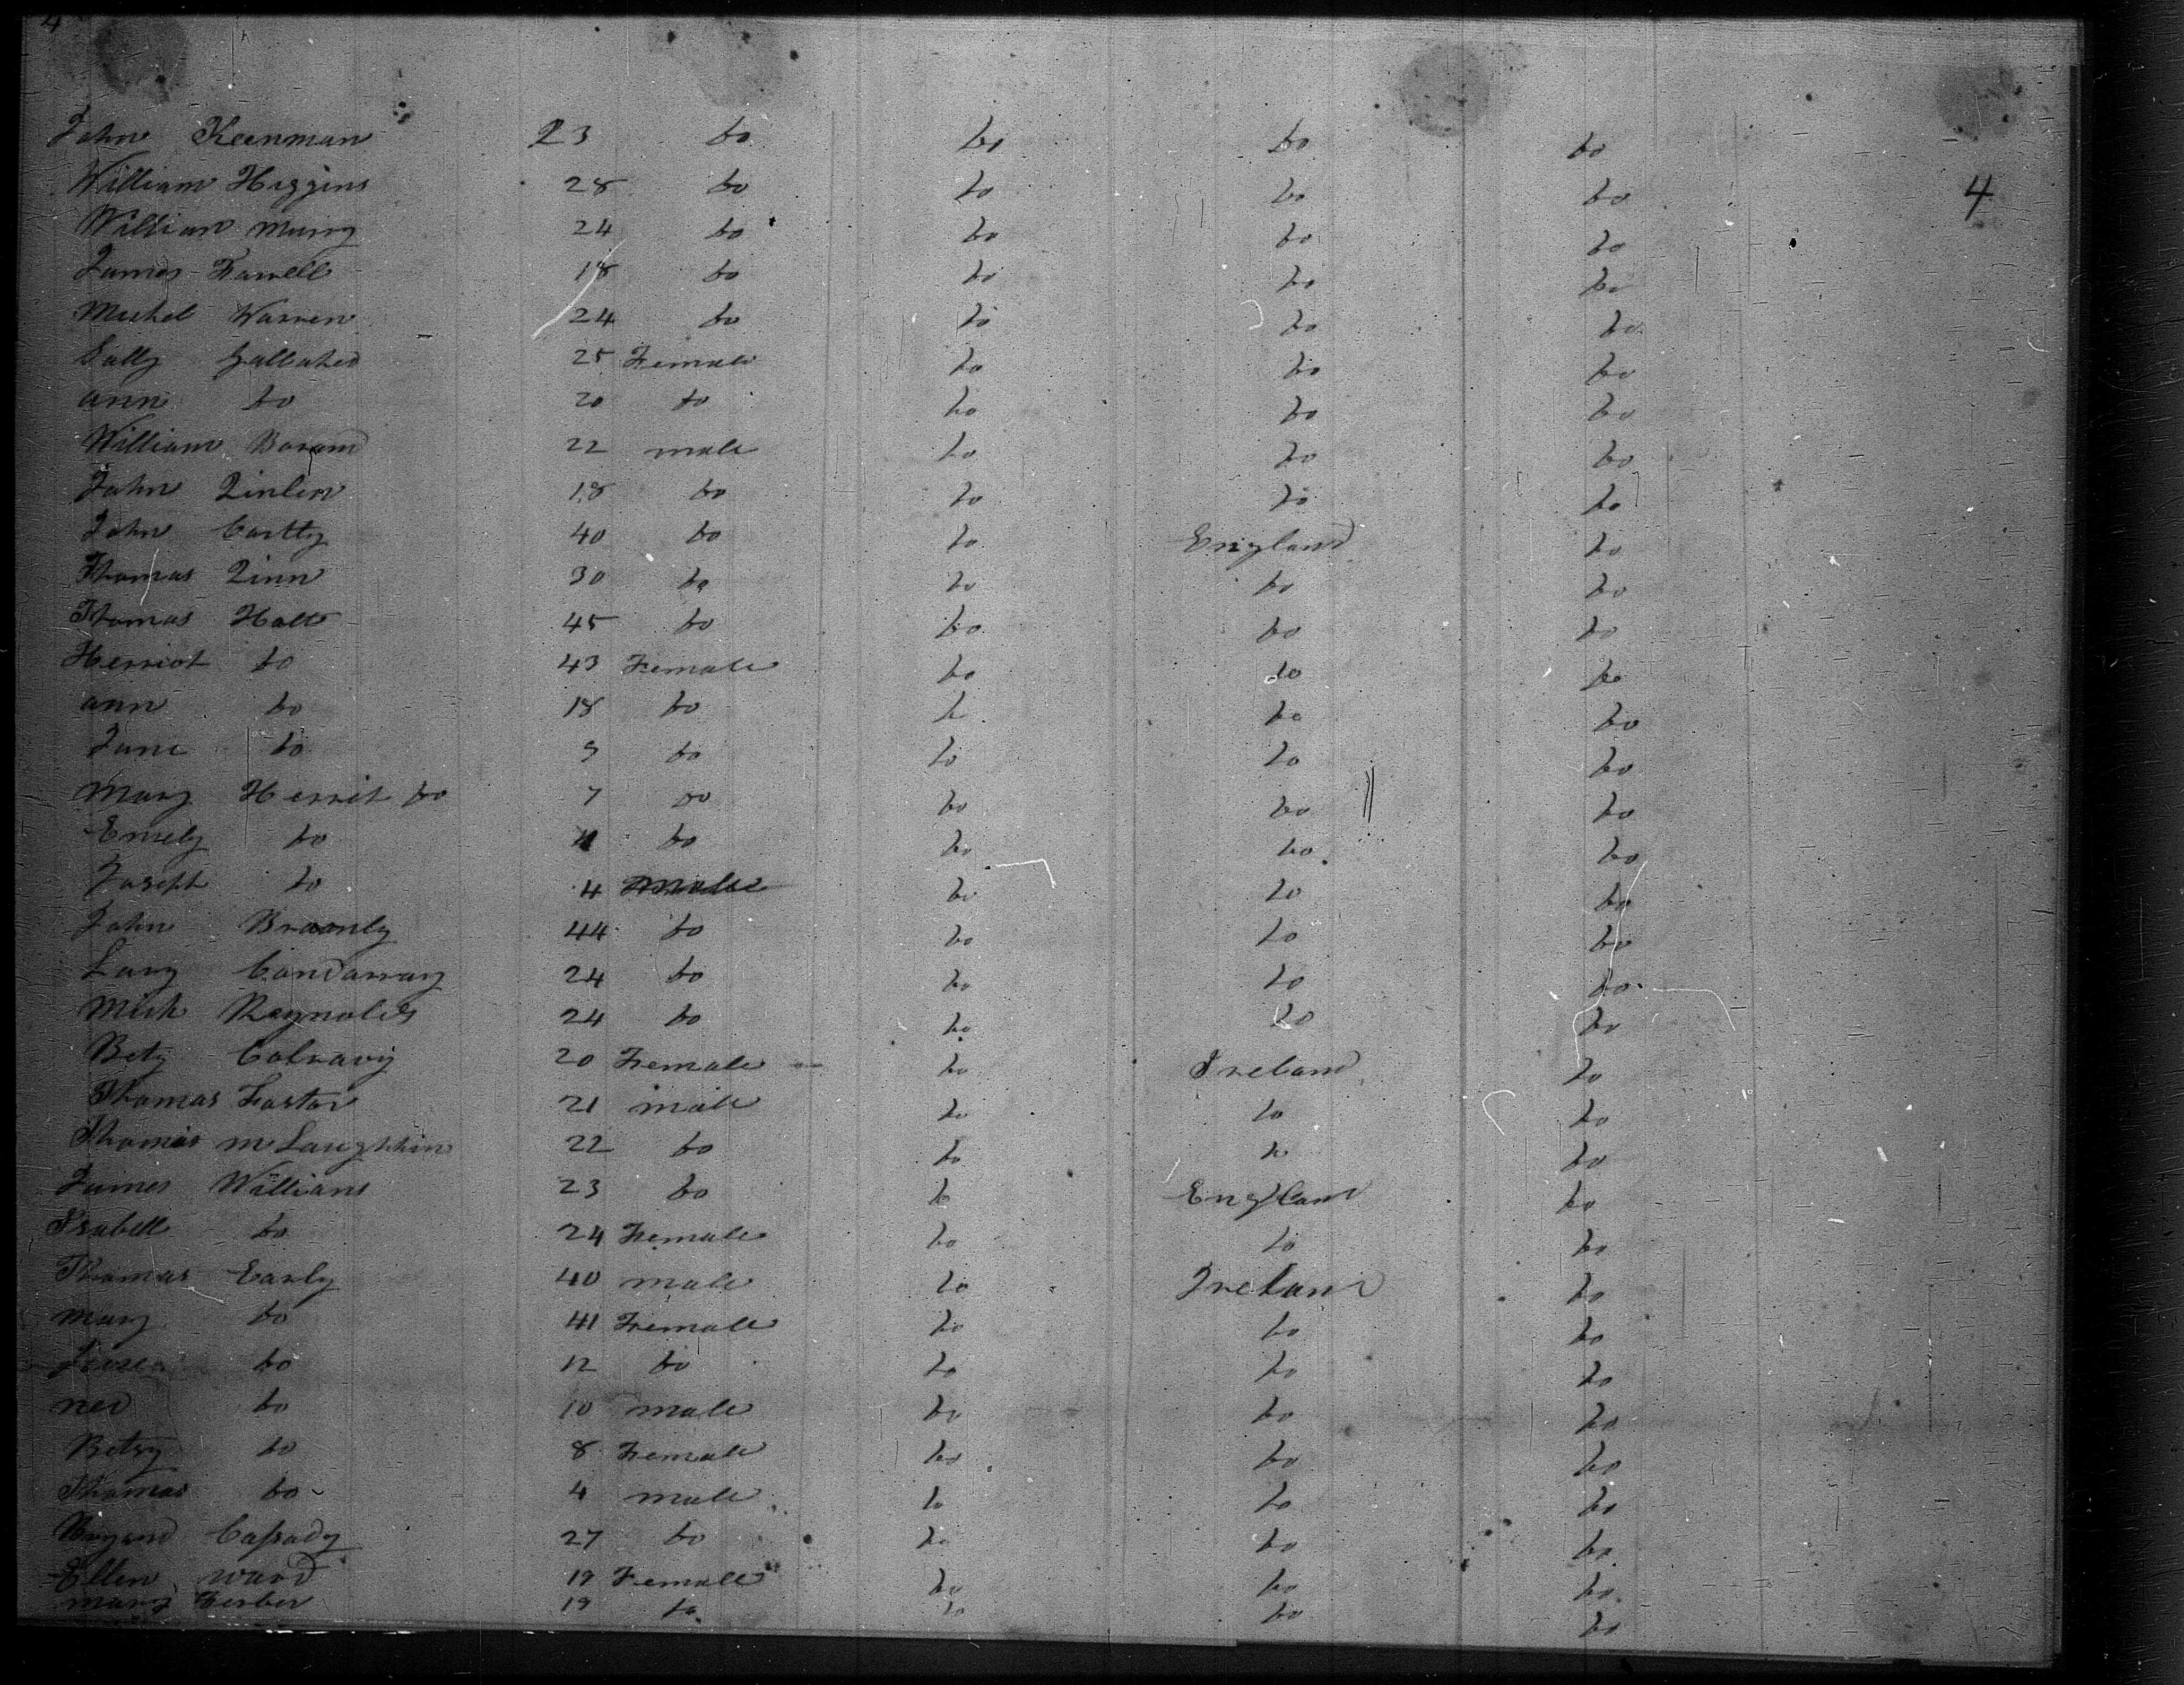 4
John Keenman 23 do do do do
William Higgins 28 do do do do 4
William Murry 24 do do do do
James Farrell 18 do do do do
Michel Warren 24 do do do do
Sally Gallaher 25 Female do do do
ann do 20 do do do do
William 22 male do do do
John Qinlin 18 do do do do
John Cartty 40 do do England do
Thomas Qinn 30 do do do do
Thomas Holt 45 do do do do
Herriot do 43 Female do do do
ann do 18 do do do do
Jane do 9 do do do do
Mary Herrit do 7 do do do do
Emely do do do do do
Joseph do 4 Male do do do
John 44 do do do do
Lary 24 do do do do
Mich Reynolds 24 do do do do
Bety Colravy 20 Female do Ireland do
Thomas Fostor 21 male do do do
Thomas mcLaughlin 22 do do do do
James Williams 23 do do England do
Isabell do 24 Female do do do
Thomas Early 40 male do Ireland do
Mary do 41 Female do do do
do 12 do do do do
ned do 10 male do do do
Betsy do 8 Female do do do
Thomas do 4 male do do do
Casady 27 do do do do
Ellen ward 19 Female do do do
Mary 19 do do do do